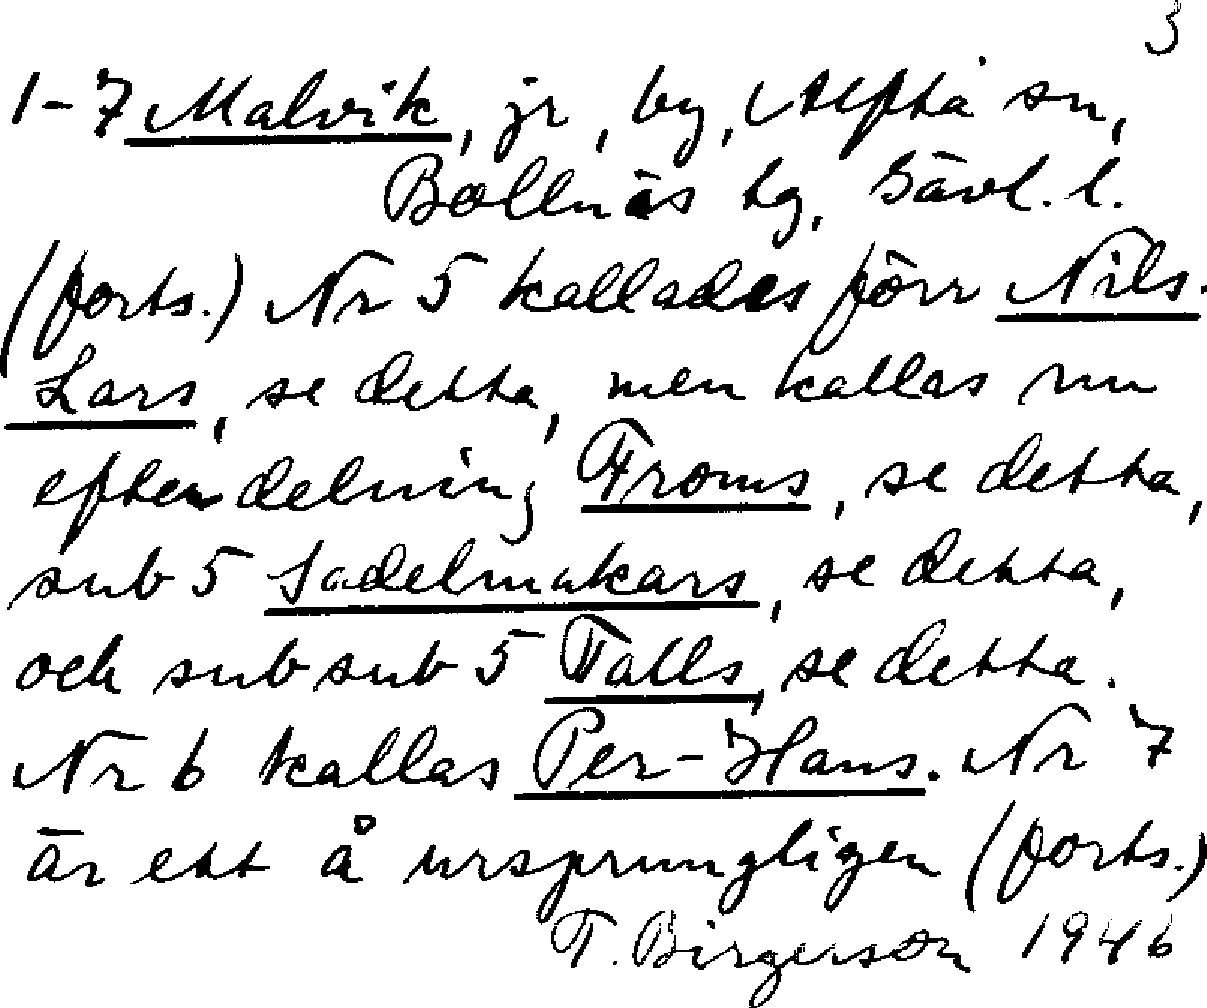 3
1-7 Malvik, jr, by, Alfta sn,
Bollnäs tg, Gävl. l.
(forts.) Nr 5 kallades förr Nils.
Lars, se detta, men kallas nu
efter delning Froms, se detta,
sub 5 Sadelmakars, se detta,
och sub sub 5 Talls, se detta.
Nr 6 kallas Per-Hans. Nr 7
är ett å ursprungligen (forts.)
T. Birgerson 1946